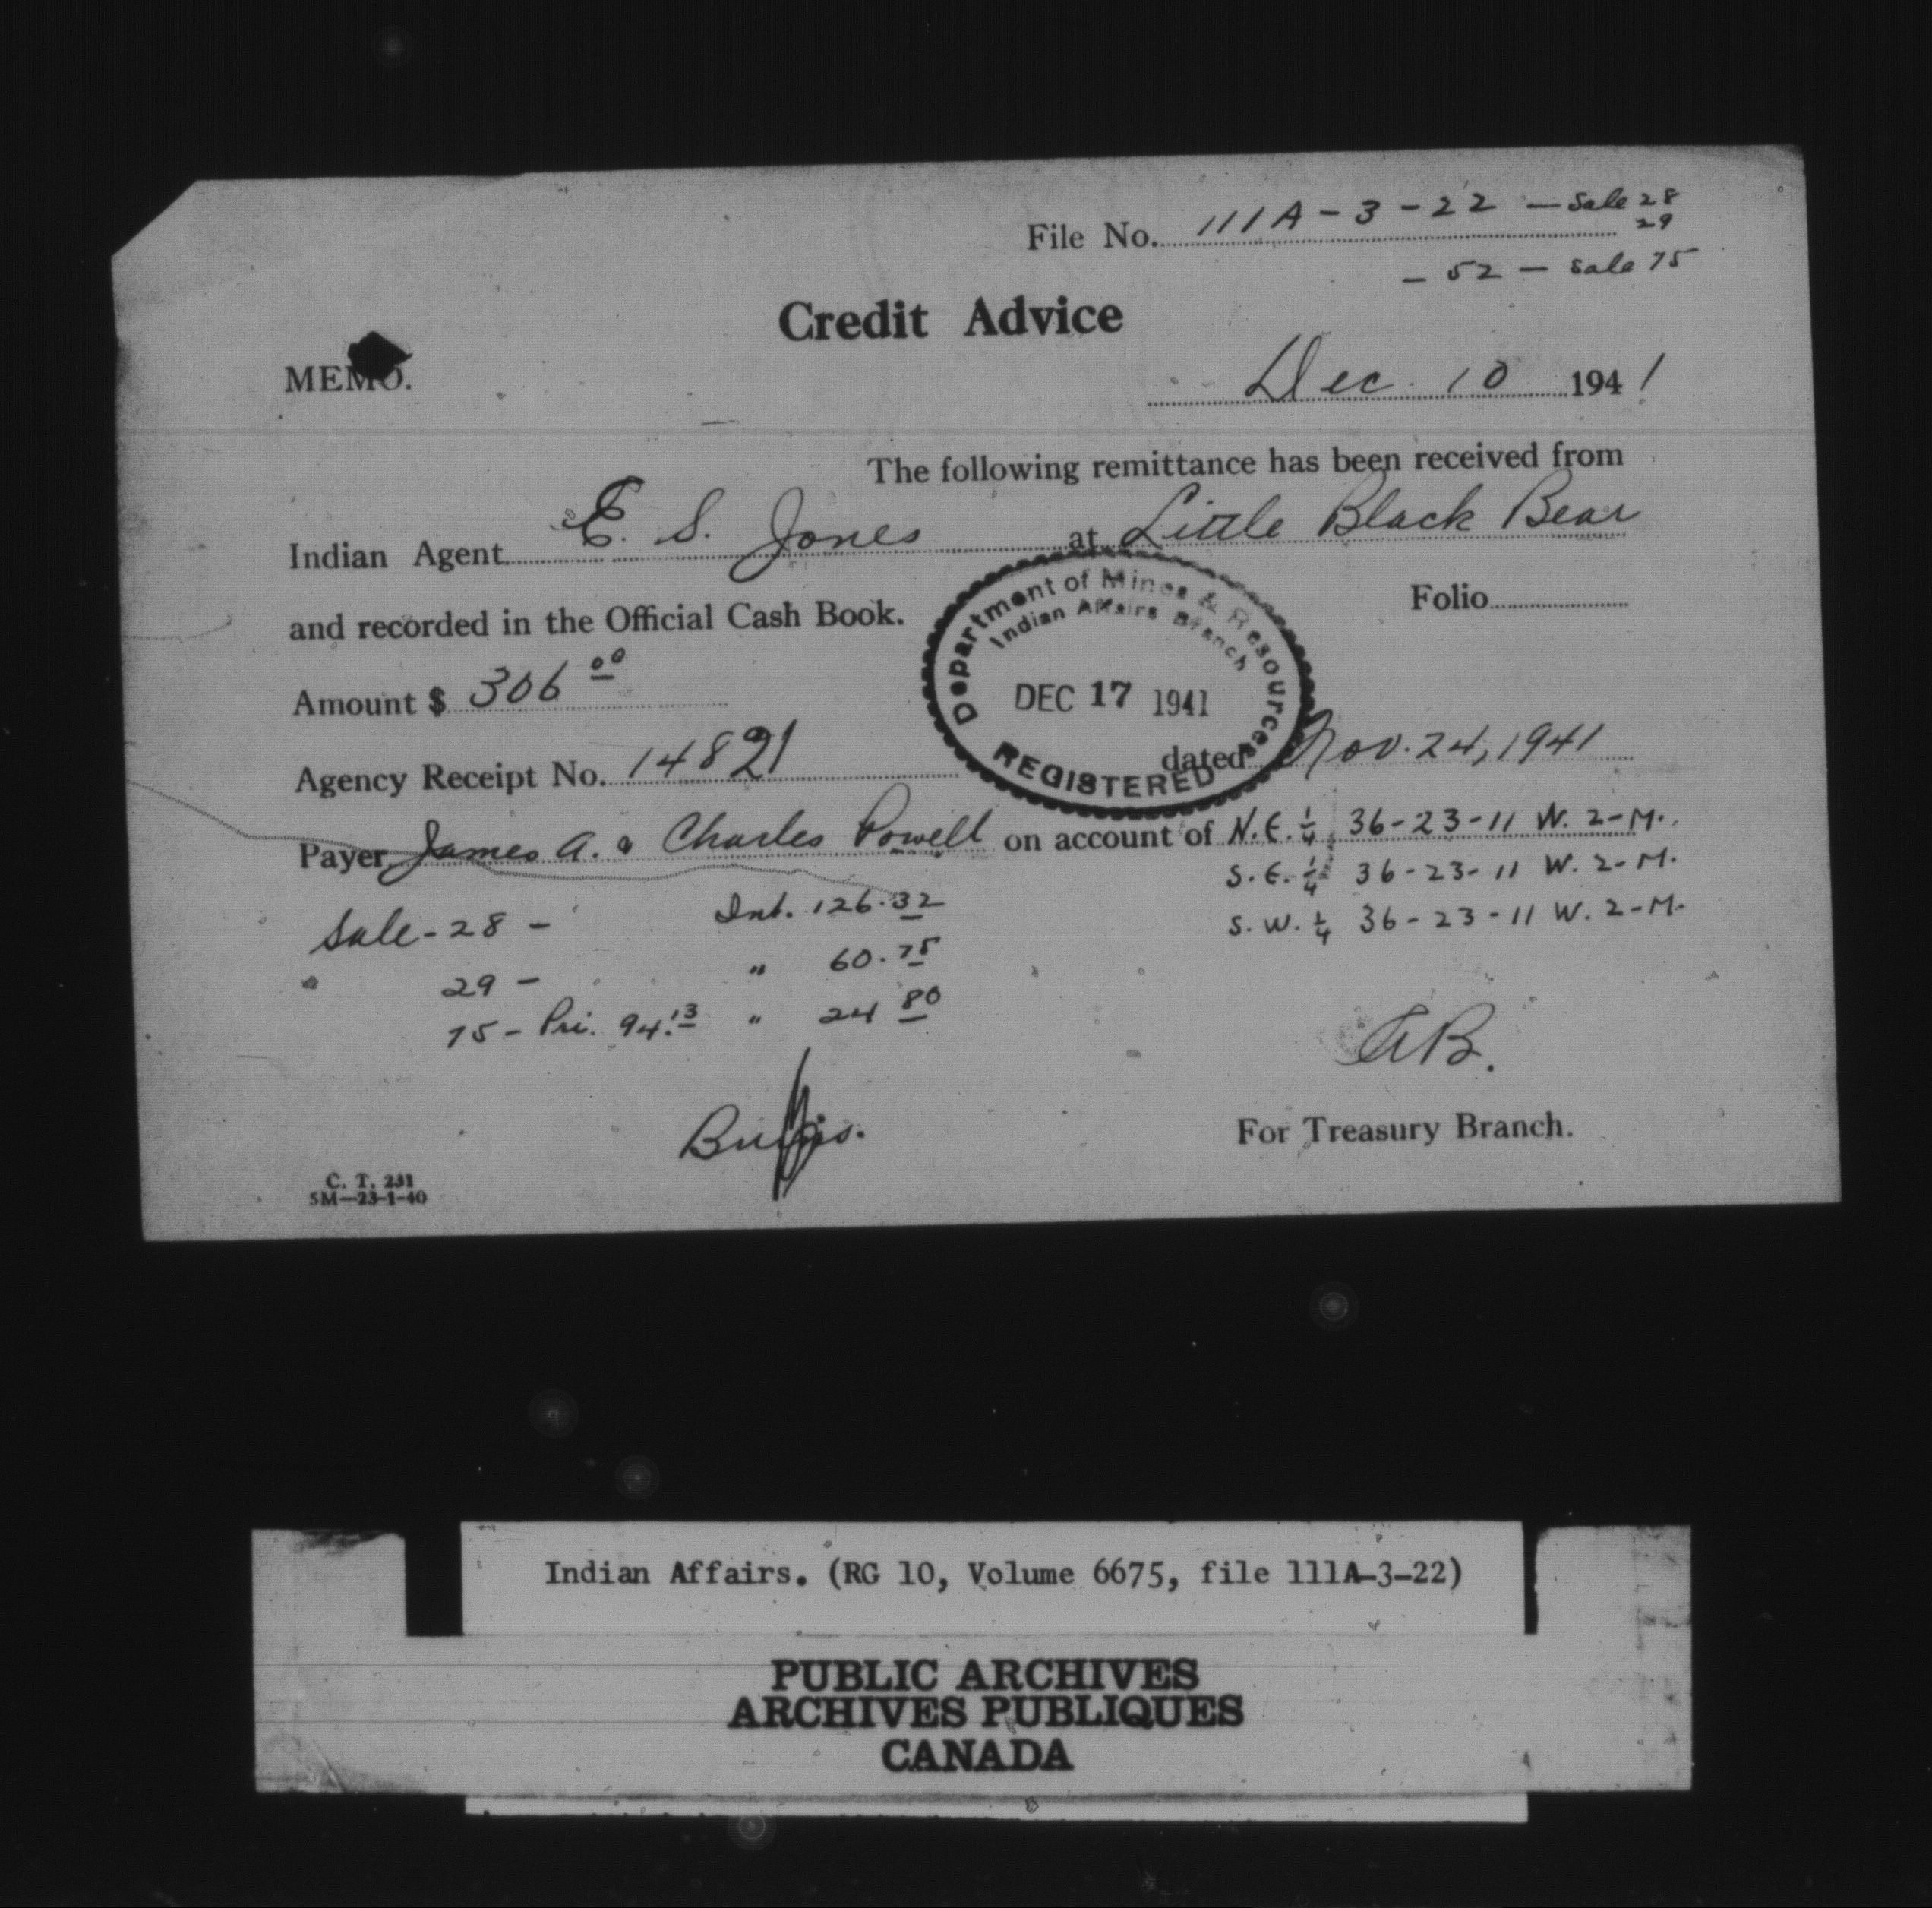 File No. 111A-3-22 — Sale 28
29
— 52 — Sale 75
Credit Advice
MEMO.
Dec. 10 1941
The following remittance has been received from
Indian Agent E. S. Jones at Little Black Bear
and recorded in the Official Cash Book.
Folio
Department of Mines & Resources
Indian Affairs Branch
DEC 17 1941
REGISTERED
Amount $ 306 00
Agency Receipt No. 14821 dated Nov. 24, 1941
Payer James A. & Charles Powell on account of N.E. 1/4 36-23-11 W. 2-M.
S.E. 1/4 36-23-11 W. 2-M.
S.W. 1/4 36-23-11 W. 2-M.
Sale - 28 - Int. 126.32
" 29 - " 60.75
75 - Pri. 94.13 " 24 80
AB.
For Treasury Branch.
C. T. 231
5M—23-1-40
Indian Affairs. (RG 10, Volume 6675, file 111A-3-22)
PUBLIC ARCHIVES
ARCHIVES PUBLIQUES
CANADA